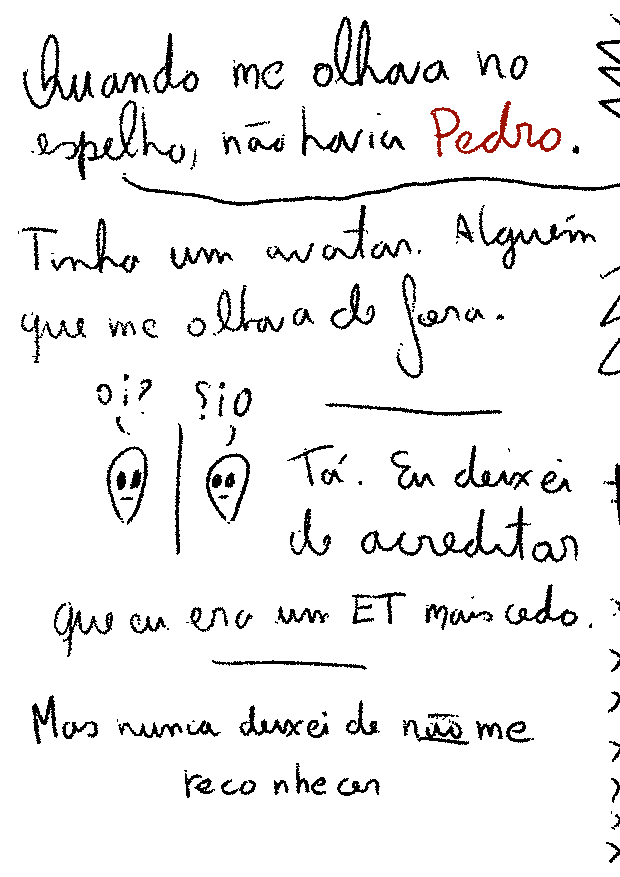 Quando me olhava no
espelho, não havia Pedro.
Tinha um avatar. Alguém
que me olhava de fora.
oi? ?io
Tá. Eu deixei
de acreditar
que eu era um ET mais cedo.
Mas nunca deixei de não me
reconhecer